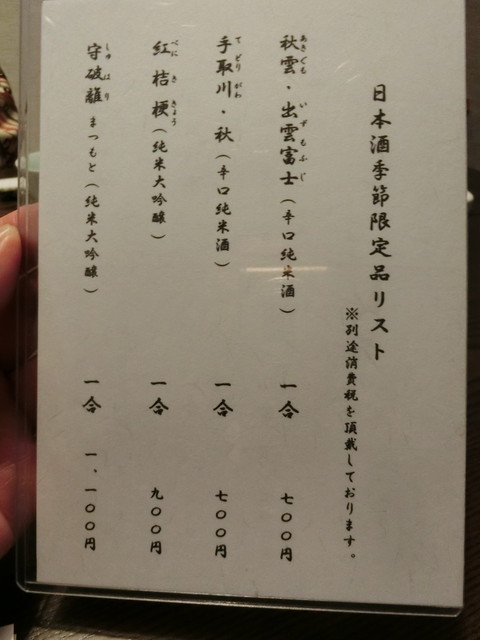 日本酒季節限定品リスト
※別途消費税を頂戴しております。
秋雲・出雲富士（辛口純米酒） 一合 七〇〇円
あきぐも いずもふじ
手取川・秋（辛口純米酒） 一合 七〇〇円
てどりがわ
紅桔梗（純米大吟醸） 一合 九〇〇円
べにききょう
守破離 まつもと（純米大吟醸） 一合 一、一〇〇円
しゅはり